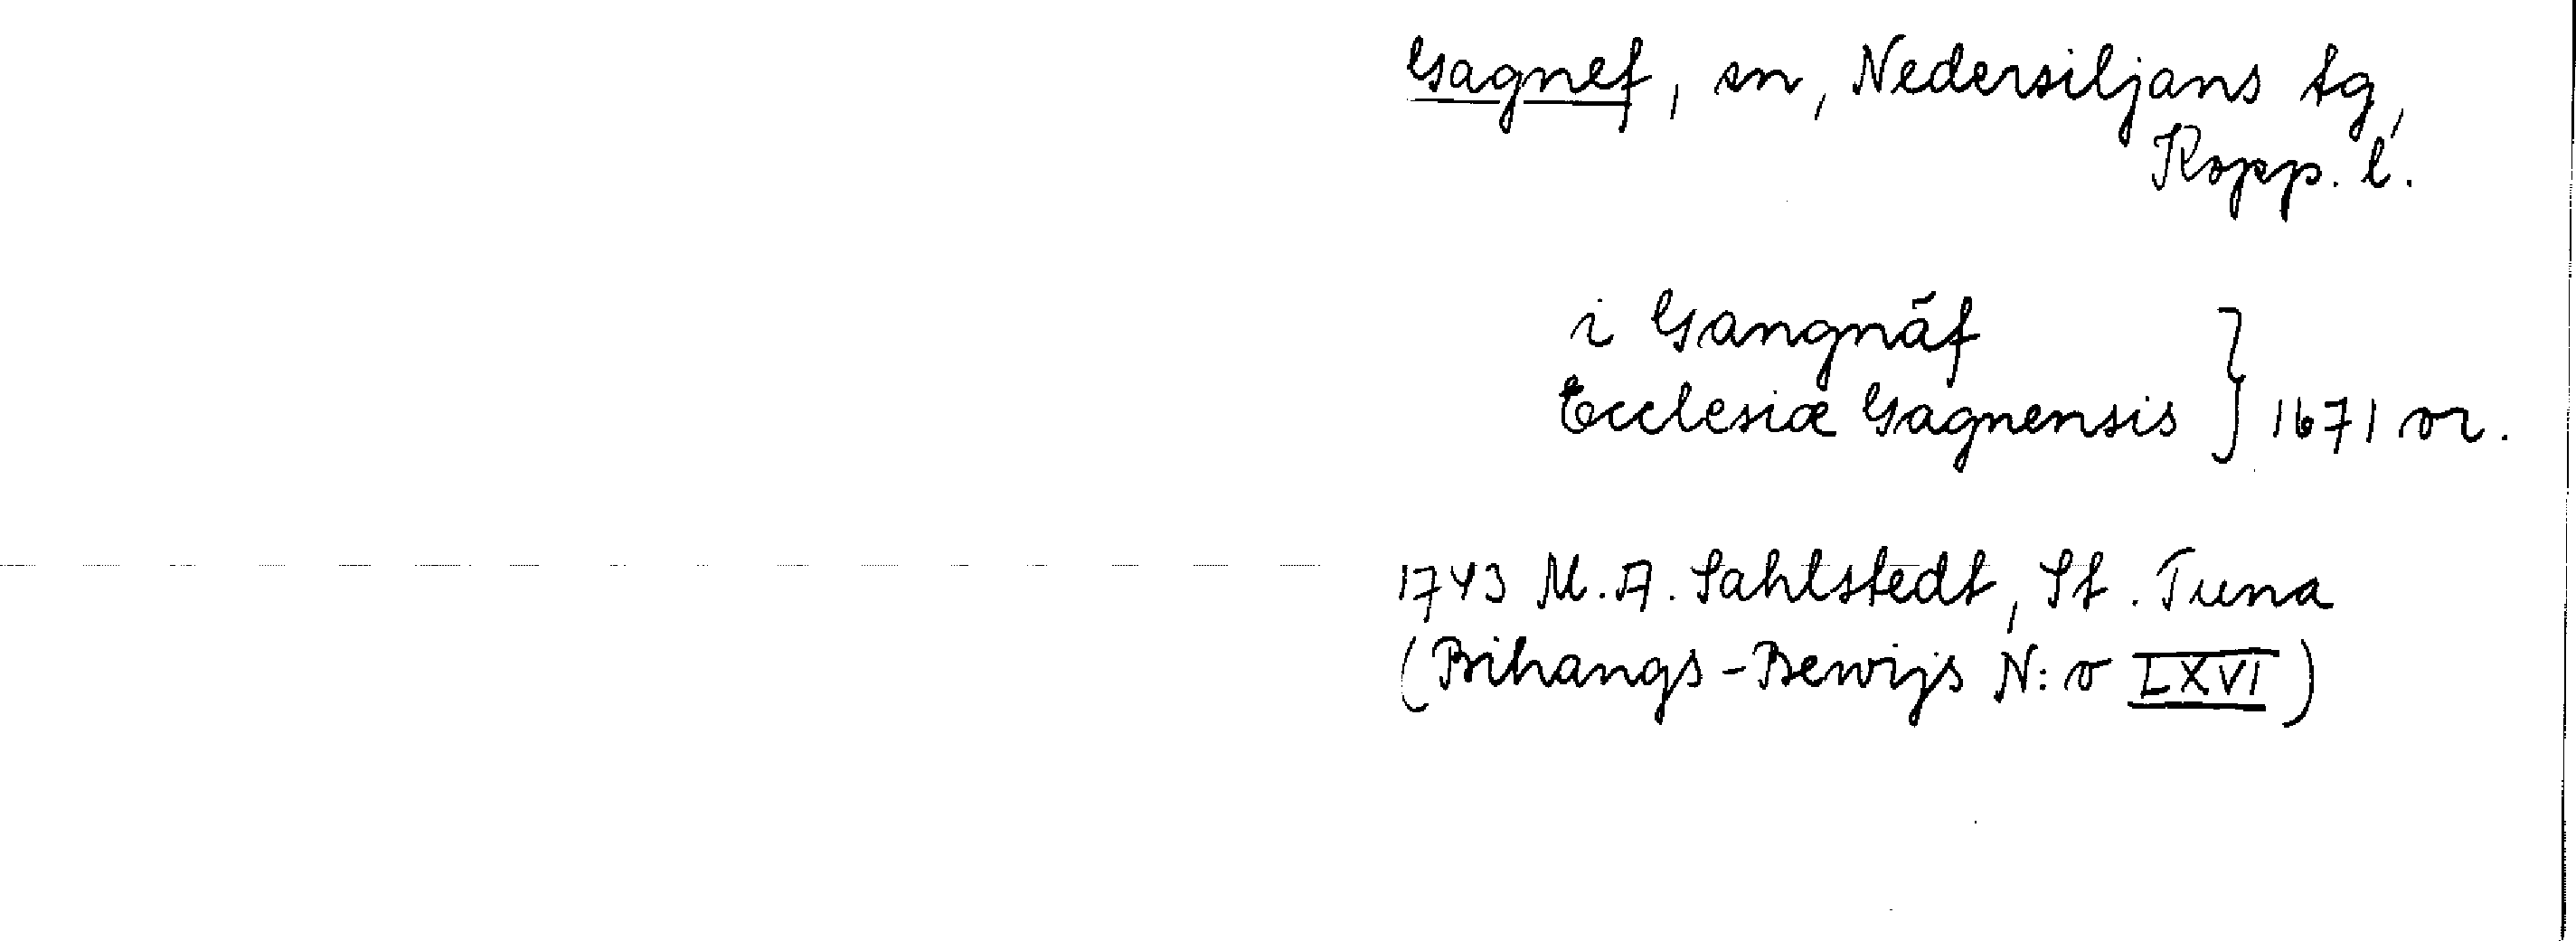 Gagnef, sn, Nedersiljans tg,
Kopp. l.
i Gangnäf
Ecclesiæ Gagnensis } 1671 or.
1743 M. A. Sahlstedt, St. Tuna
(Bihangs-Bewijs N:o LXVI)